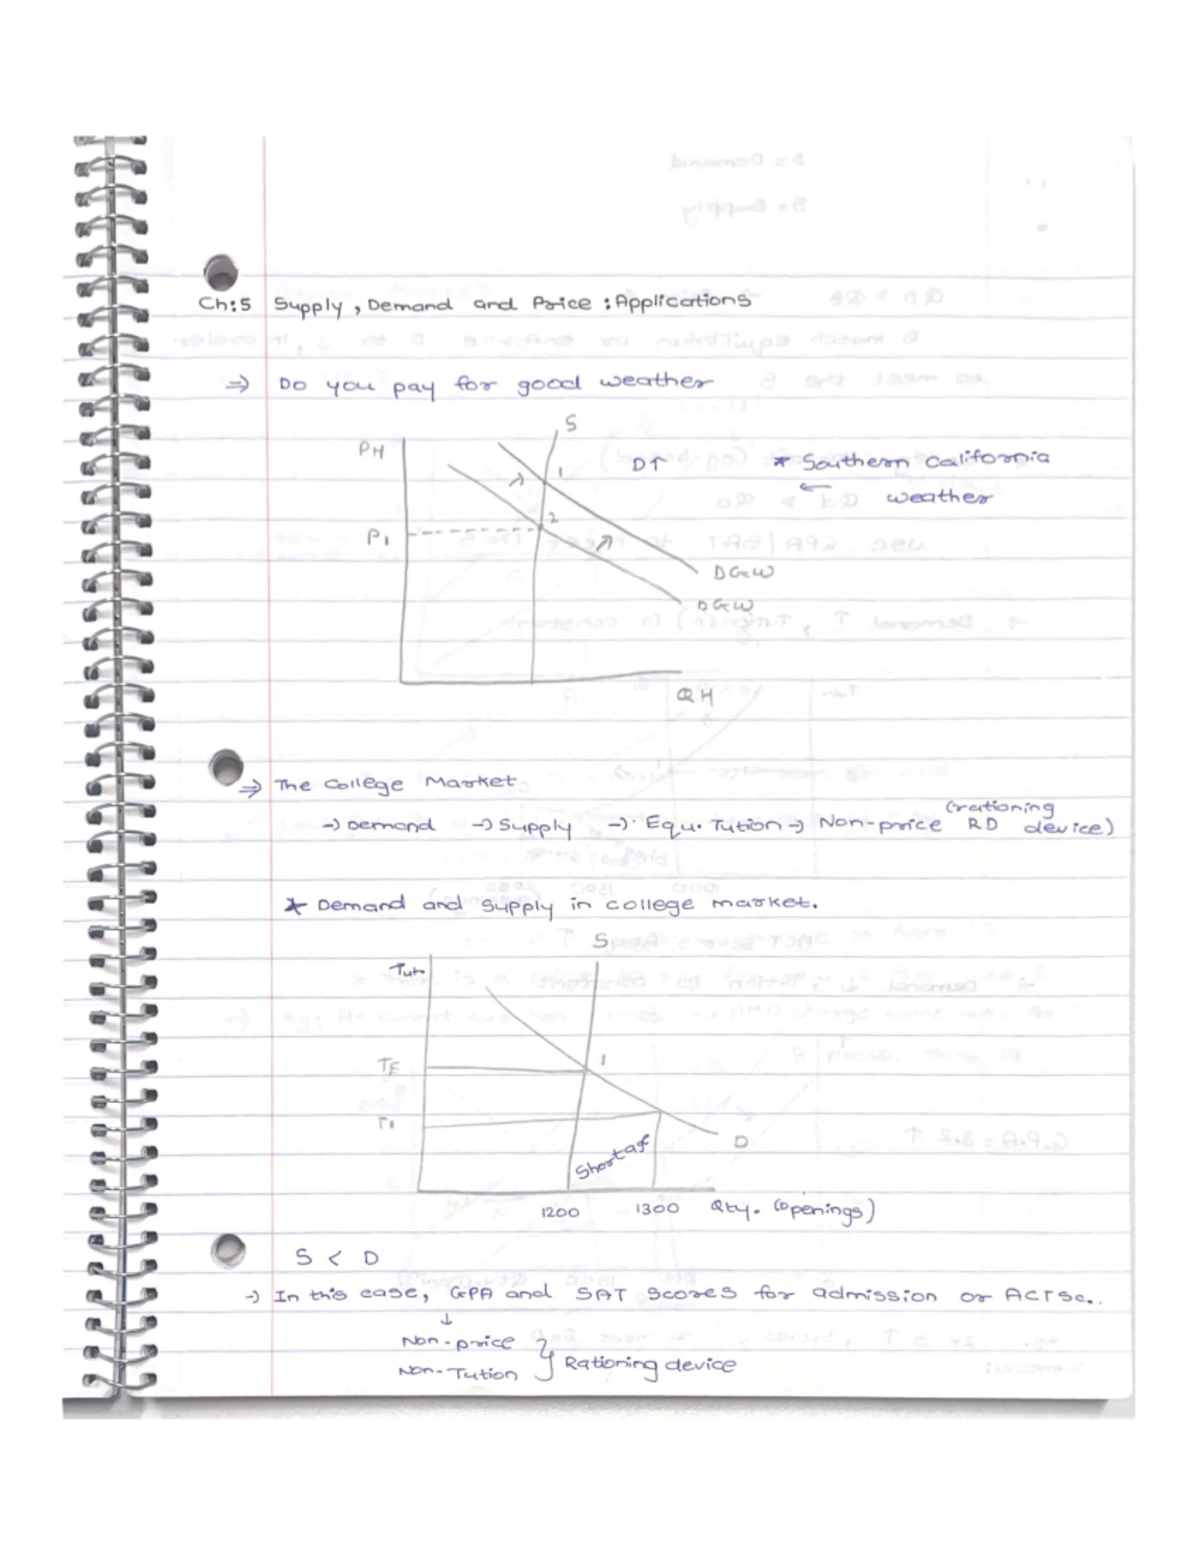 Ch:5 Supply, Demand and Price : Applications
=> Do you pay for good weather
S
PH
1
D↑
* Southern California
← weather
2
P1
DGW
DGW
QH
=> The College Market
(rationing
-> Demand -> Supply -> Equ. Tution -> Non-price RD device)
* Demand and supply in college market.
S
Tut
TE
1
T1
D
Shortag
1200 1300 Qty. (openings)
S < D
-> In this case, GPA and SAT scores for admission or ACT Sc..
↓
Non-price
Non-Tution } Rationing device